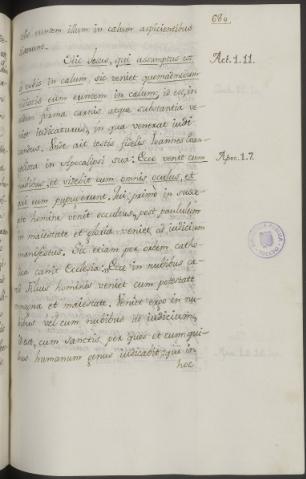 680
illo euntem illum in cælum aspicientibus
dicunt.
Hic Jesus, qui assumptus est
a vobis in cælum, sic veniet quemadmodum
vidistis eum euntem in cælum, id est, in
eadem forma carnis atque substantia ve-
niet iudicaturus, in qua venerat iudi-
candus. Unde ait testis fidelis Ioannes Evan-
gelista in Apocalipsi sua: Ecce venit cum
nubibus, et videbit eum omnis oculus, et
qui eum pupugerunt. Qui primo in susce-
pto homine venit occultus, post paululum
in maiestate et gloria veniet ad iudicium
manifestus. Sic etiam per orbem catho-
lica canit Ecclesia: Ecce in nubibus cæ-
li Filius hominis veniet cum potestate
magna et maiestate. Veniet ergo in nu-
bibus vel cum nubibus ad iudicium,
idest, cum sanctis, per quos et cum qui-
bus humanum genus iudicabit, qui in
hoc
Act. 1. 11.
Apoc. 1. 7.